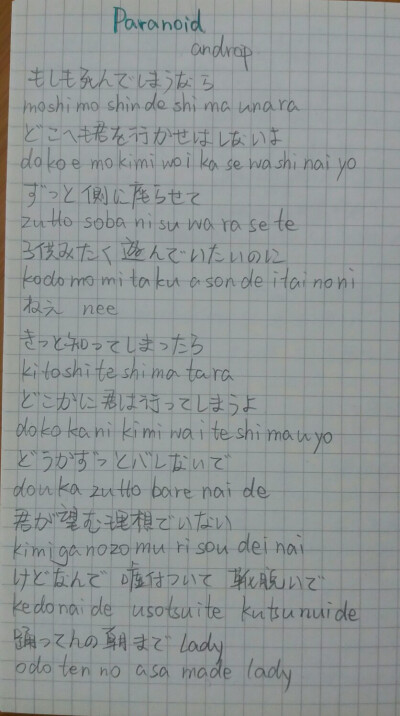 Paranoid
androp
もしも死んでしまうなら
moshimo shinde shimaunara
どこへも君を行かせはしないよ
dokoe mo kimi wo i ka se wa shi nai yo
ずっと側に座らせて
zutto soba ni su wara se te
子供みたく遊んでいたいのに
kodomo mi taku a son de itai no ni
ねえ nee
きっと知ってしまったら
kitoshite shima tara
どこかに君は行ってしまうよ
doko kani kimi wa i te shimau yo
どうかずっとバレないで
douka zutto bare nai de
君が望む理想でいない
kimi ga nozo mu ri sou de i nai
けどなんで 嘘付ついて 靴脱いで
kedonaide usotsuite kutsunuide
踊ってんの朝まで lady
odo ten no asa made lady